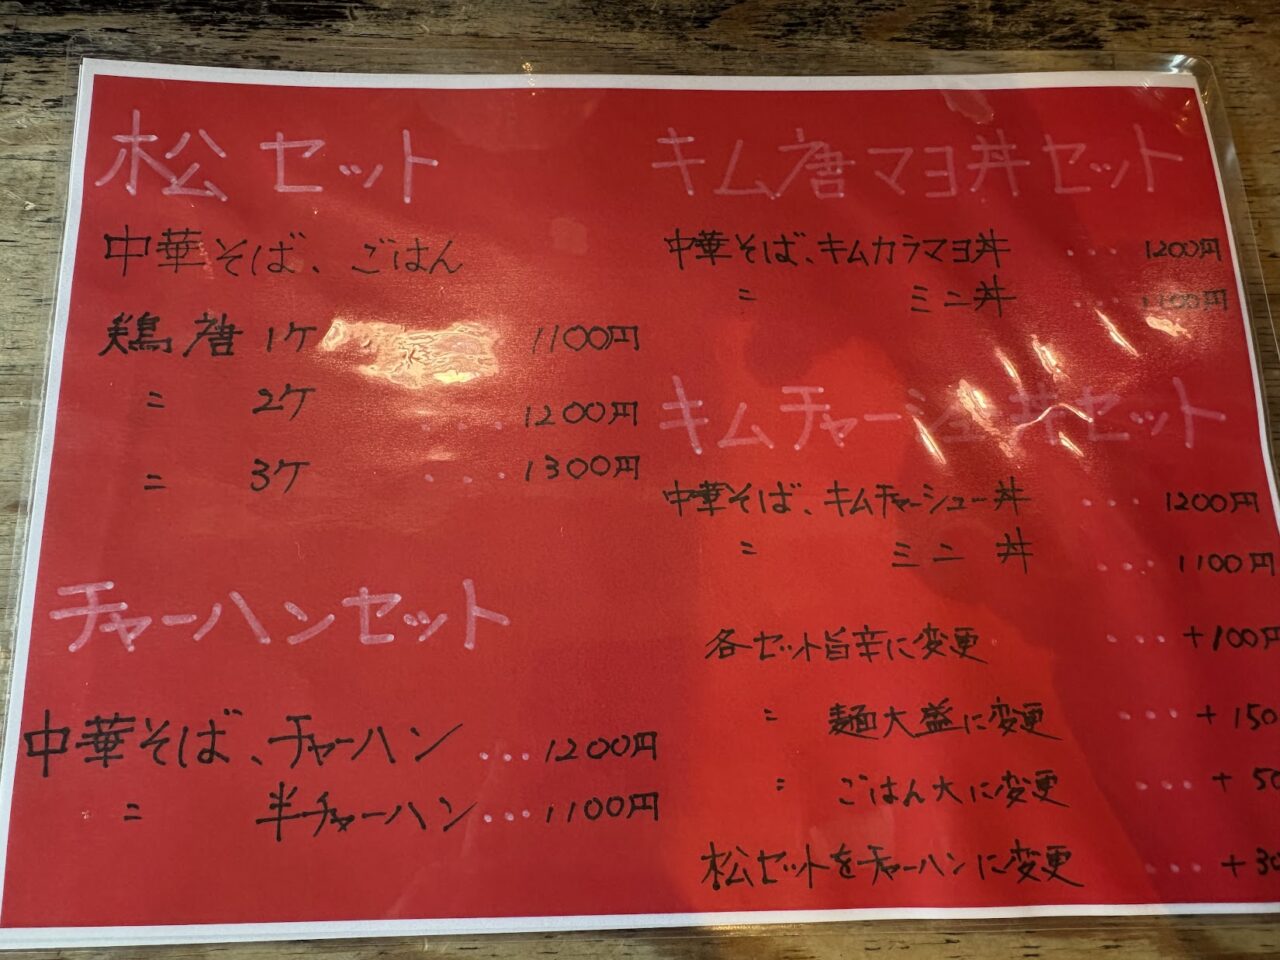 松セット
中華そば、ごはん
鶏唐 1ケ 1100円
〃 2ケ ... 1200円
〃 3ケ ... 1300円
チャーハンセット
中華そば、チャーハン ... 1200円
〃 半チャーハン ... 1100円
キム唐マヨ丼セット
中華そば、キムカラマヨ丼 ... 1200円
〃 ミニ丼 ... 1100円
キムチャーシュー丼セット
中華そば、キムチャーシュー丼 ... 1200円
〃 ミニ丼 ... 1100円
各セット旨辛に変更 ... +100円
〃 麺大盛に変更 ... +150
〃 ごはん大に変更 ... +50
松セットをチャーハンに変更 ... +30